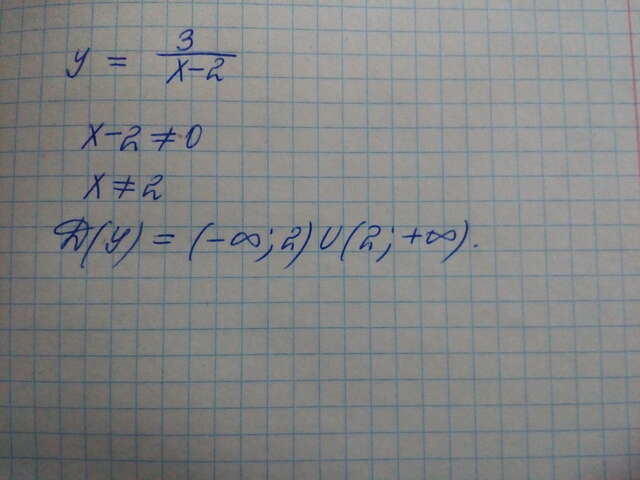 y = 3/(x-2)
x-2≠0
x≠2
D(y) = (-∞; 2)∪(2; +∞).